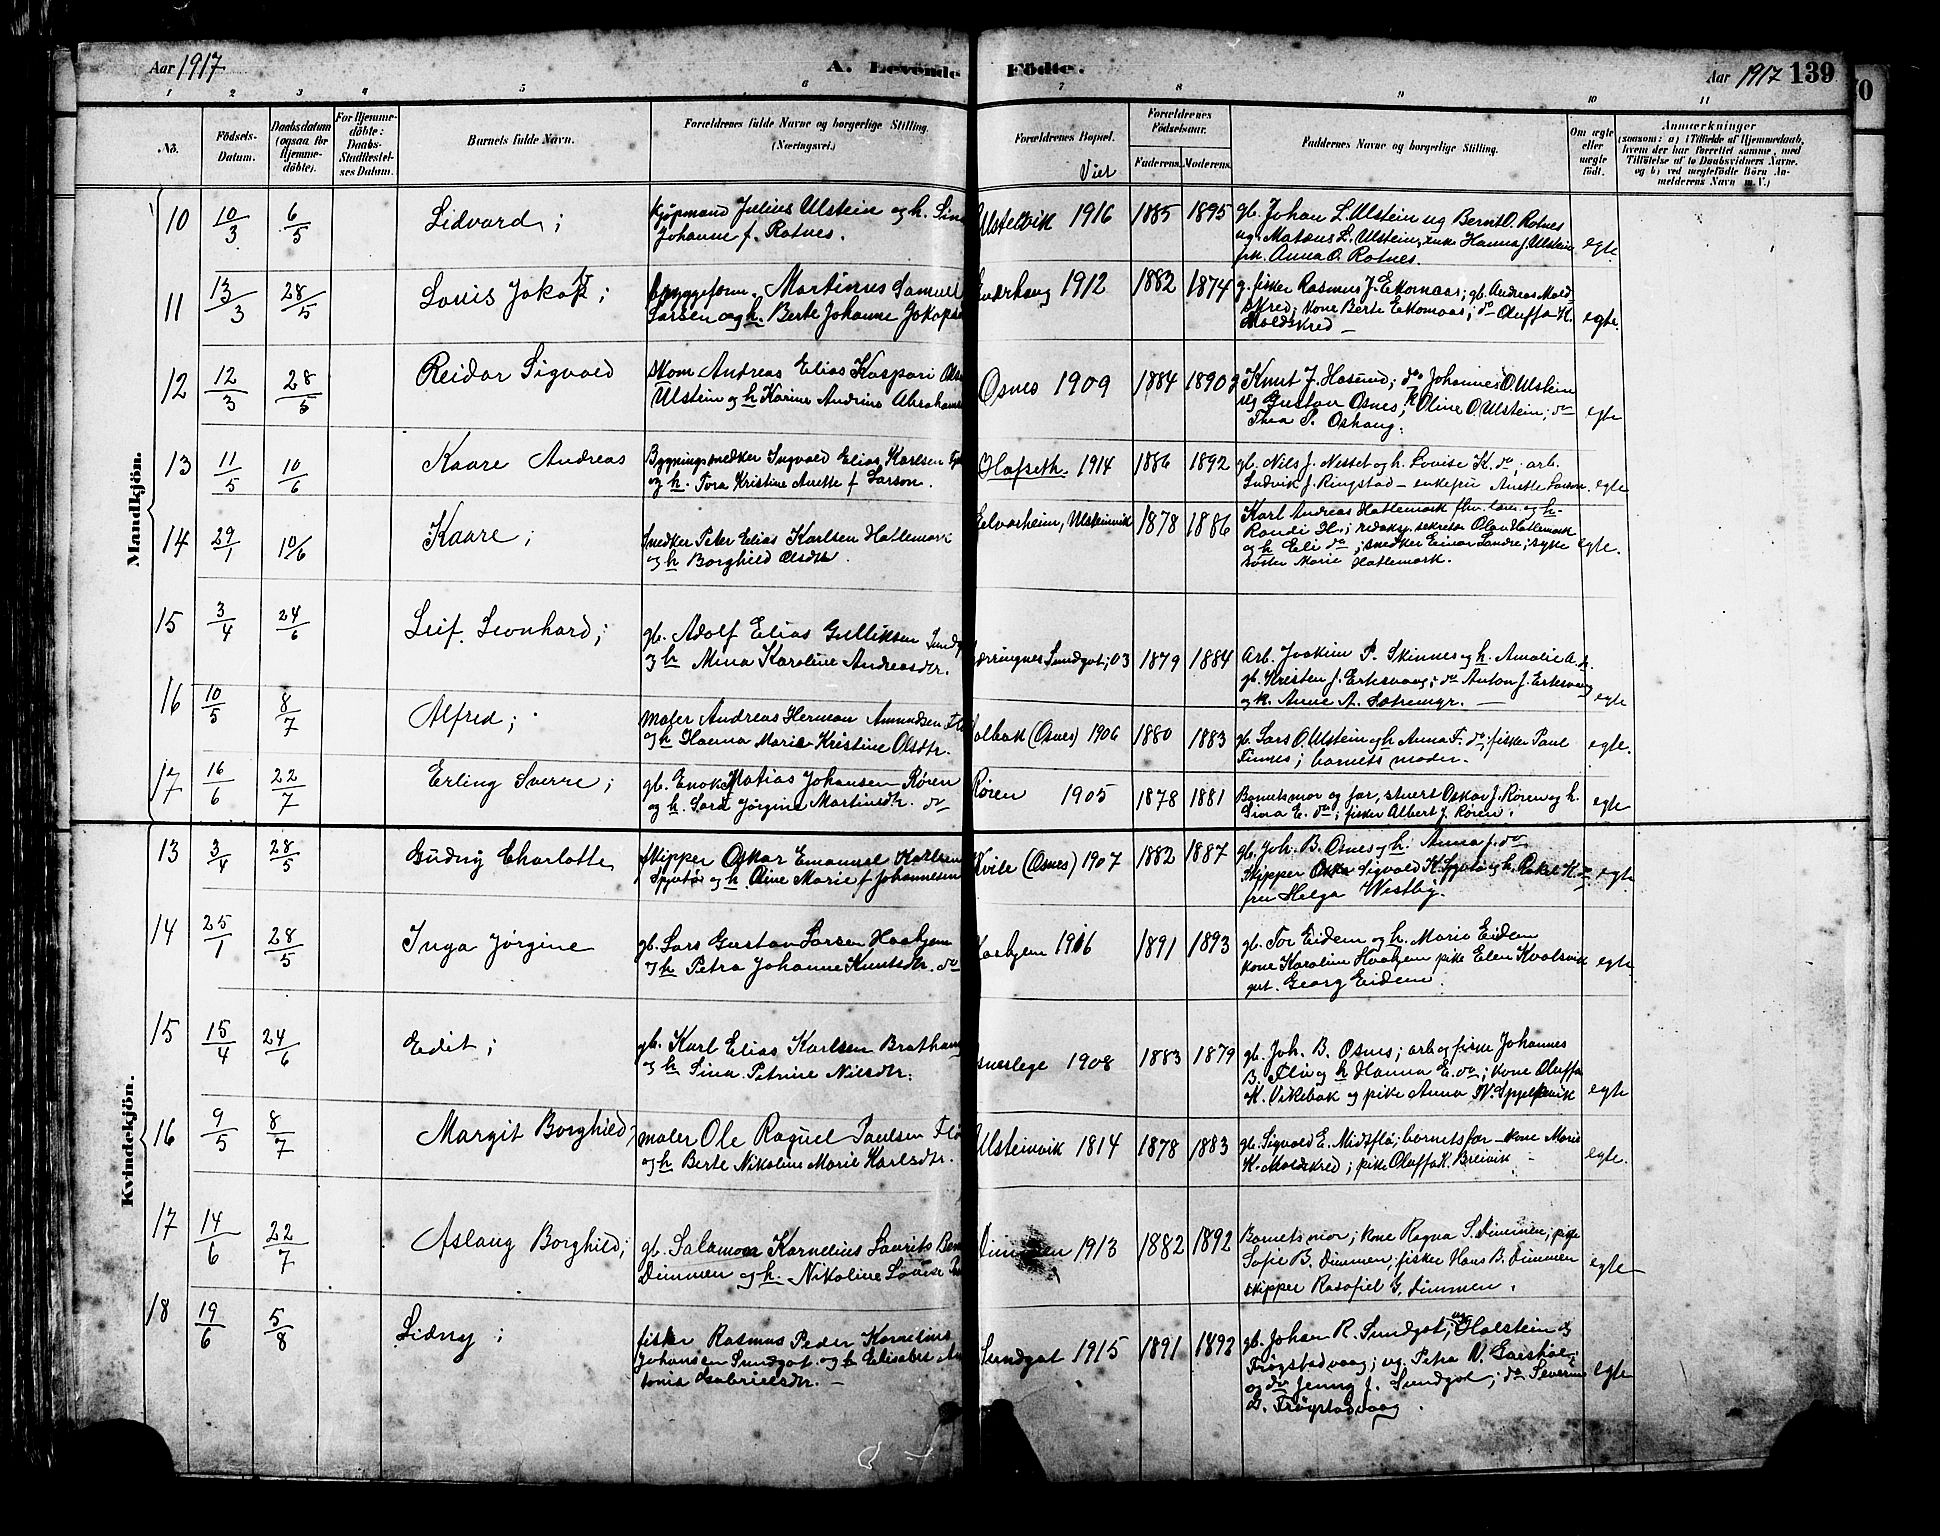 Aar 1917
A. Levende Födte.
Aar 1917 139
1 2 3 4 5 6 7 8 9 10 11
No.
Födsels-Datum.
Daabsdatum (ogsaa for Hjemme-döbte).
For Hjemme-döbte: Daabs-Stadfæstel-ses Datum.
Barnets fulde Navn.
Forældrenes fulde Navne og borgerlige Stilling.
(Næringsvei.)
Forældrenes Bopæl.
Viet
Forældrenes Födselsaar.
Faderens. Moderens.
Faddernes Navne og borgerlige Stilling.
Om ægte eller uægte födt.
Anmærkninger
(saasom: a) i Tilfælde af Hjemmedaab, hvem der har forrettet samme, med Tilföielse af to Daabsvidners Navne, og b) ved uægtefödte Börn Anmelderens Navn m. V.)
Mandkjön.
10 10/3 6/5 Sidvard; Kjøpmand Julius Ulstein og h.
Johanne f. Rotnes.
1916 1885 1895 gb. Johan L. Ulstein ug Bernt O. Rotnes
ug. Matæus L. Ulstein, enke Hanna J. Ulstein
pk. Anna O. Rotnes. egte.
11 13/3 28/5 Louis Jakob; Martinus Samuel
Larsen og h. Berte Johanne
1912 1882 1874 fisker Rasmus J. Eikomaas; gb. Andreas Mold-
skred; kone Berte Eikomaas; do Oluffa K.
Moldskred — egte
12 12/3 28/5 Reidar Sigvald skom Andreas Elias Kaspari
Ulstein og h Karine Andrine
Osnes 1909 1884 1890 Knut J. Hasund; do Johannes O. Ulstein
ug Gustav Osnes, Oline O. Ulstein; do
Thea P. Oshaug. egte
13 11/5 10/6 Kaare Andreas Bygningsnedker Ingvald Elias Karlsen
og h. Tora Kristine Anette f Larson.
Olafseth. 1914 1886 1892 gb. Nils J. Nesset og h. Lovise K. do; arb.
Ludvik J. Ringstad — enkefru Anette Larson. egte
14 29/1 10/6 Kaare; Snedker Peter Elias Karlsen Hatlemark
og h Borghild Olsdtr.
Ulsteinvik 1878 1886 Karl Andreas Hatlemark fhv. lærer og h-
Randi H.; redaksj. sekretær Olav Hatlemark
og h Eli do; snedker Einar Sandre; syke
søster Marie Hatlemark. egte.
15 3/4 24/6 Leif Leonhard; gb. Adolf Elias Gulliksen
og h Mina Karoline Andreasdtr.
Sundgot; 03 1879 1884 Arb. Joakim P. Skinnes og h. Amalie A.
gb. Kristen J. Eiksvaag; do Anton J. Eiksvaag
og k. Anne A. — egte
16 10/5 8/7 Alfred; maler Andreas Herman Amundsen
og h Hanna Marie Kristine Olsdtr.
(Osnes) 1906 1880 1883 gb. Lars O. Ulstein og h Anna F. do; fisker Paul
Finnes; barnets moder. egte.
17 16/6 22/7 Erling Sverre; gb. Enok Matias Johansen Røren
og h. Sara Jørgine Martinsdtr. do
Røren 1905 1878 1881 Barnets mor og far, stuert Oskar J. Røren og h.
E. do; fisker Albert J. Røren. egte
Kvindekjön.
13 3/4 28/5 Gudny Charlotte Skipper Oskar Emanuel Karlsen
og h Oline Marie f Johannesen
Kvite (Osnes) 1907 1882 1887 gb. Joh. B. Osnes og h. Anna J. do
Skipper Sigvald K. og h. Rakel K. do
fru Helga Westby. egte
14 25/1 28/5 Inga Jørgine gb. Lars Gustav Larsen Hasbjem
og h Petra Johanne Knutsdtr. do
1916 1891 1893 gb. Tor Eidem og h. Marie Eidem
kone Karoline pike Elen Kvalsvik
gut. Georg Eidem. egte
15 15/4 24/6 Edit; gb. Karl Elias Karlsen
og h Sina Petrine Nilsdtr.
1908 1883 1879 gb. Joh. B. Osnes; arb og fisker Johannes
B. Flø og h Hanna E. do; kone Oluffa
K. Vikebak og pike Anna egte
16 9/5 8/7 Margit Borghild; maler Ole Raguel Paulsen
og h Berte Nikoline Marie Karlsdtr.
Ulsteinvik 1814 1878 1883 gb. Sigvald E. Midtflø; barnets far — kone Marie
K. Moldskred; pike Oluffa K. Breivik egte.
17 14/6 22/7 Aslaug Borghild; gb. Salamon Kornelius Laurits
Dimmen og h. Nikoline
Dimmen 1913 1882 1892 Barnets mor; kone Ragna S. Dimmen; pike
Sofie B. Dimmen; fisker Hans B. Dimmen
skipper Rasofiel G. Dimmen. egte
18 19/6 5/8 Sidny; fisker Rasmus Peder Kornelius
Johansen Sundgot og h Elisabet
Gabrielsdtr. —
Sundgot 1915 1891 1892 gb. Johan R. Sundgot; ug Halstein G
Frøystadvaag; ug. Petra
og do Jenny J. Sundgot; do Severine
G. Frøystadvaag. egte